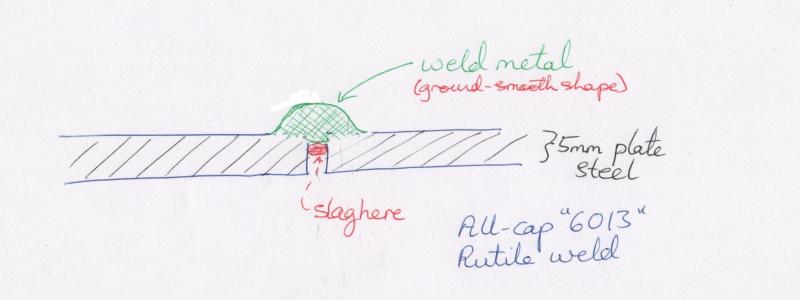 weld metal
(ground-smooth shape)
}5mm plate
steel
slag here
All-cap "6013"
Rutile weld